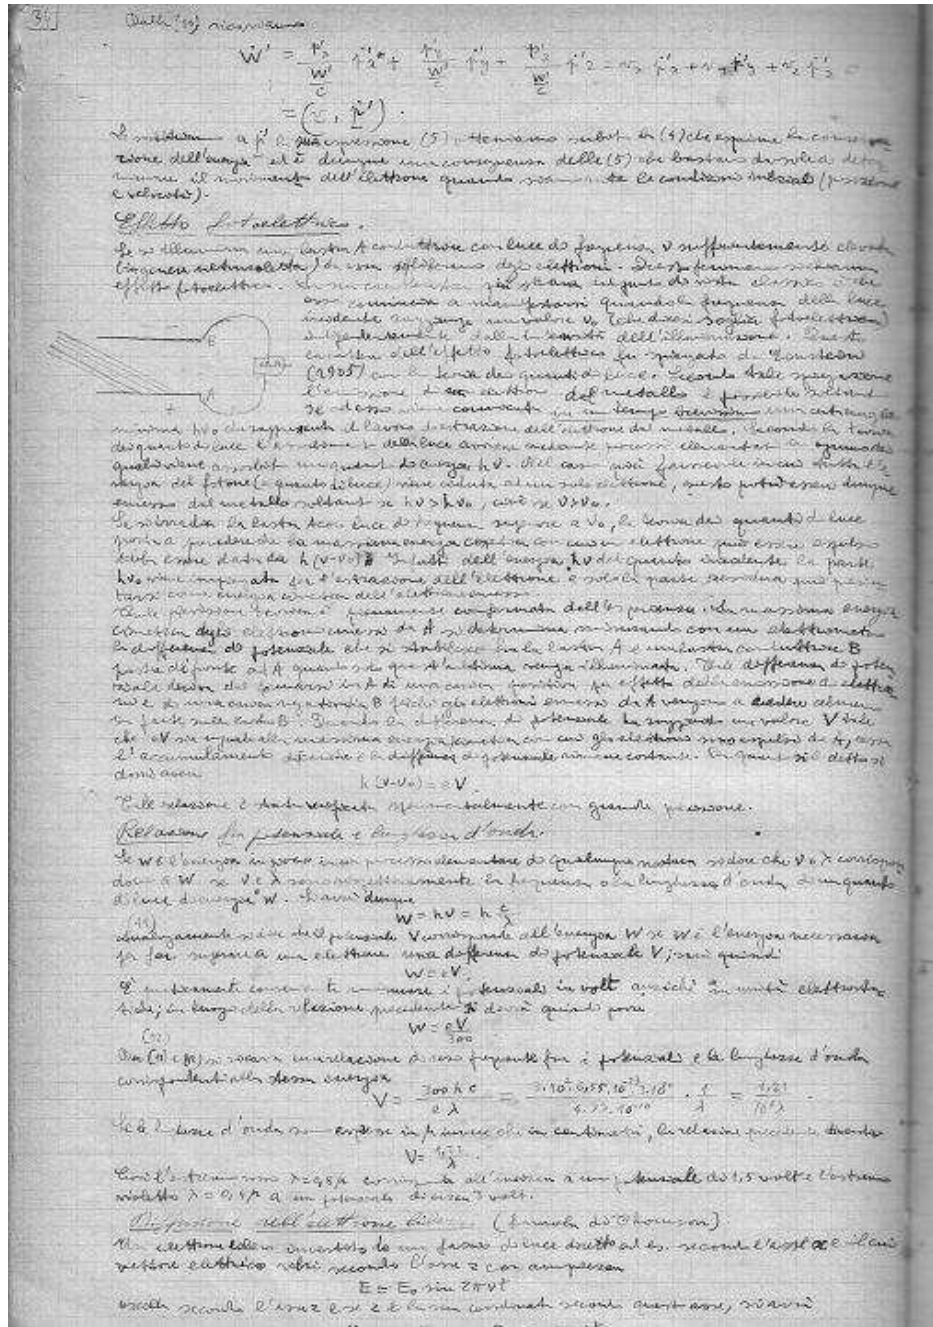 34
Dalla (10) ricaviamo
W' = p'x/(W'/c) p'x + p'y/(W'/c) p'y + p'z/(W'/c) p'z = vx p'x + vy p'y + vz p'z
= (v, p') .
a p' la espressione (5) otteniamo subito la (4) che esprime la conserva
zione dell'energia ed è dunque una conseguenza delle (5) che bastano da sole a deter
minare il movimento dell'elettrone quando siano note le condizioni iniziali (posizione
e velocità).
Effetto fotoelettrico.
Se si illumina una lastra A conduttrice con luce di frequenza ν sufficientemente elevata
(in genere ultravioletta) da essa si liberano degli elettroni. Questo fenomeno si chiama
effetto fotoelettrico. La sua caratteristica più strana dal punto di vista classico è che
esso comincia a manifestarsi quando la frequenza della luce
incidente raggiunge un valore ν0 (che dicesi soglia fotoelettrica)
indipendente dalla intensità dell'illuminazione. Questa
caratteristica dell'effetto fotoelettrico fu spiegata da Einstein
(1905) con la teoria dei quanti di luce. Secondo tale spiegazione
l'emissione di un elettrone del metallo è possibile soltanto
se ad esso viene comunicata in un tempo brevissimo una certa energia
minima hν0 che rappresenta il lavoro di estrazione dell'elettrone dal metallo. Secondo la teoria
dei quanti di luce l' della luce avviene mediante processi elementari in ognuno dei
quali viene assorbito un quanto di energia hν. Nel caso più favorevole in cui tutta l'e
nergia del fotone (o quanto di luce) viene ceduta ad un solo elettrone, questo potrà essere dunque
emesso dal metallo soltanto se hν > hν0, cioè se ν > ν0.
Se si irradia la lastra A con luce di frequenza superiore a ν0, la teoria dei quanti di luce
porta a prevedere che la massima energia cinetica con cui un elettrone può essere espulso
debba essere data da h(ν-ν0). Infatti dell'energia hν del quanto incidente la parte
hν0 viene impiegata per l'estrazione dell'elettrone e solo la parte residua può presen
tarsi come energia cinetica dell'elettrone emesso.
Tale previsione teorica è pienamente confermata dall'esperienza. La massima energia
cinetica degli elettroni emessi da A si determina misurando con un elettrometro
la differenza di potenziale che si stabilisce fra la lastra A e una lastra conduttrice B
posta di fronte ad A quando quest'ultima venga illuminata. Tale differenza di poten
ziale deriva dal formarsi in A di una carica positiva per effetto della emissione di elettro
ni e di una carica negativa in B perché gli elettroni emessi da A vengono a cadere almeno
in parte sulla lastra B. Quando la differenza di potenziale ha raggiunto un valore V tale
che eV sia uguale alla massima energia cinetica con cui gli elettroni sono espulsi da A, cessa
l'accumulamento di cariche e la differenza di potenziale rimane costante. Per quanto si è detto si
dovrà avere
h(ν-ν0) = eV
Tale relazione è stata verificata sperimentalmente con grande precisione.
Relazione fra potenziale e lunghezza d'onda.
Se W è l'energia in gioco in un processo elementare di qualunque natura si dice che ν e λ corrispon
dono a W se ν e λ sono rispettivamente la frequenza e la lunghezza d'onda di un quanto
di luce di energia W. Si avrà dunque
(11) W = hν = h c/λ
Analogamente si dice che il potenziale V corrisponde all'energia W se W è l'energia necessaria
per far superare a un elettrone una differenza di potenziale V; sarà quindi
W = eV.
È praticamente conveniente misurare i potenziali in volt anziché in unità elettrosta
tiche; in luogo della relazione precedente si dovrà quindi porre
(12) W = eV/300
Da (11) e (12) si ricava una relazione di uso frequente fra i potenziali e le lunghezze d'onda
corrispondenti alla stessa energia
V = 300 h c / e λ = 3·10²·6,55·10⁻²⁷·3·10¹⁰ / 4,77·10⁻¹⁰ · 1/λ = 1,23 / 10⁴λ .
Se le lunghezze d'onda sono espresse in μ invece che in centimetri, la relazione precedente diventa
V = 1,23/λ .
Così l'estremo rosso λ=0,8μ corrisponde all'incirca a un potenziale di 1,5 volt e l'estremo
violetto λ = 0,4μ a un potenziale di circa 3 volt.
Diffusione dell'elettrone libero (formula di Thomson)
Un elettrone libero investito da un fascio di luce diretto ad es. secondo l'asse x e il cui
vettore elettrico vibri secondo l'asse z con ampiezza
E = E0 sin 2πνt
oscilla secondo l'asse z e se z è la sua coordinata secondo quest'asse, si avrà